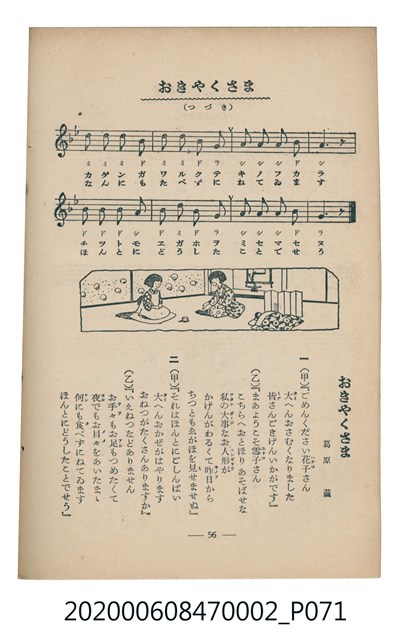 おきやくさま
(つづき)
ミミミドミミドラシシシドラシ
カゲンガワルクテキノフカラ
なんにもたべずにねてゐます
ドドドシドドシラシシシドドラ
チツトモヱガホヲミセマセヌ
ほんとにどうしたことでせう
おきやくさま
葛原 䔈
一 (甲)『ごめんください花子さん
大へんおさむくなりました
皆さんごきげんいかがです』
(乙)『まあようこそ雪子さん
こちらへおとほりあそばせな
私の大事なお人形が
かげんがわるくて昨日から
ちつともゑがほを見せませぬ』
二 (甲)『それはほんとにごしんぱい
大へんおかぜがはやります
おねつがたくさんありますか』
(乙)『いえねつなどありません
お手々もお足もつめたくて
夜でもお目々をあいたまゝ
何にも食べずにねてゐます
ほんとにどうしたことでせう』
— 56 —
202000608470002_P071